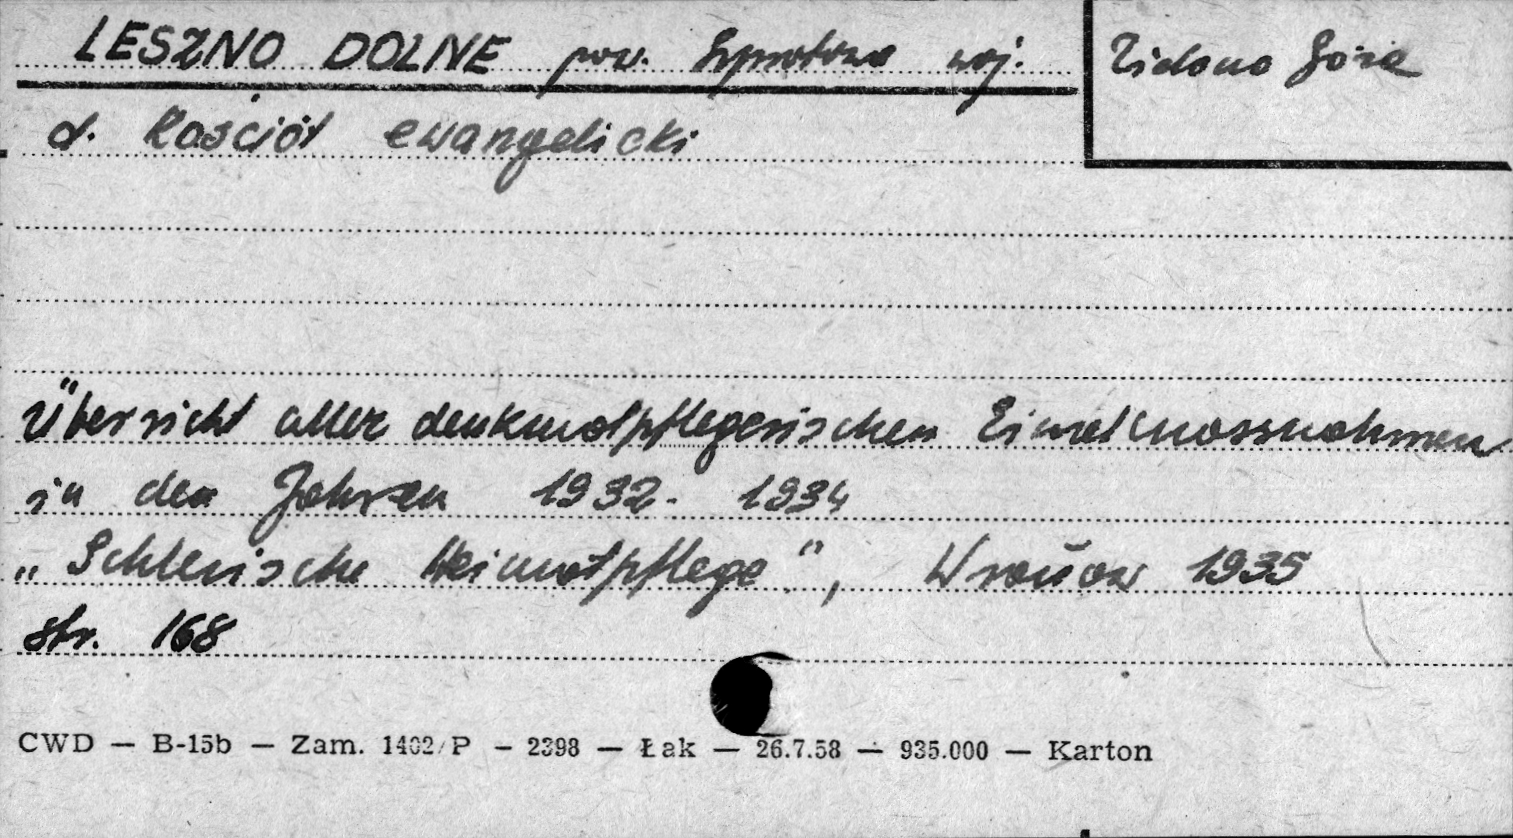 LESZNO DOLNE pow. Szprotawa woj. Zielona Góra
d. Kościół ewangelicki
Übersicht aller denkmalpflegerischen Einzelmassnahmen
in den Jahren 1932 - 1934
„Schlesische Heimatpflege", Wrocław 1935
str. 168
CWD — B-15b — Zam. 1402/P — 2398 — Łak — 26.7.58 — 935.000 — Karton